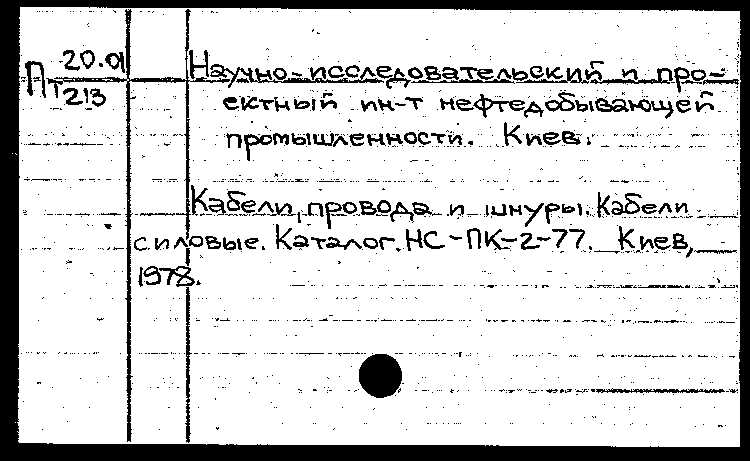 Пт 20.01
213
Научно-исследовательский и про-
ектный ин-т нефтедобывающей
промышленности. Киев.
Кабели, провода и шнуры. Кабели
силовые. Каталог. НС-ПК-2-77. Киев,
1978.